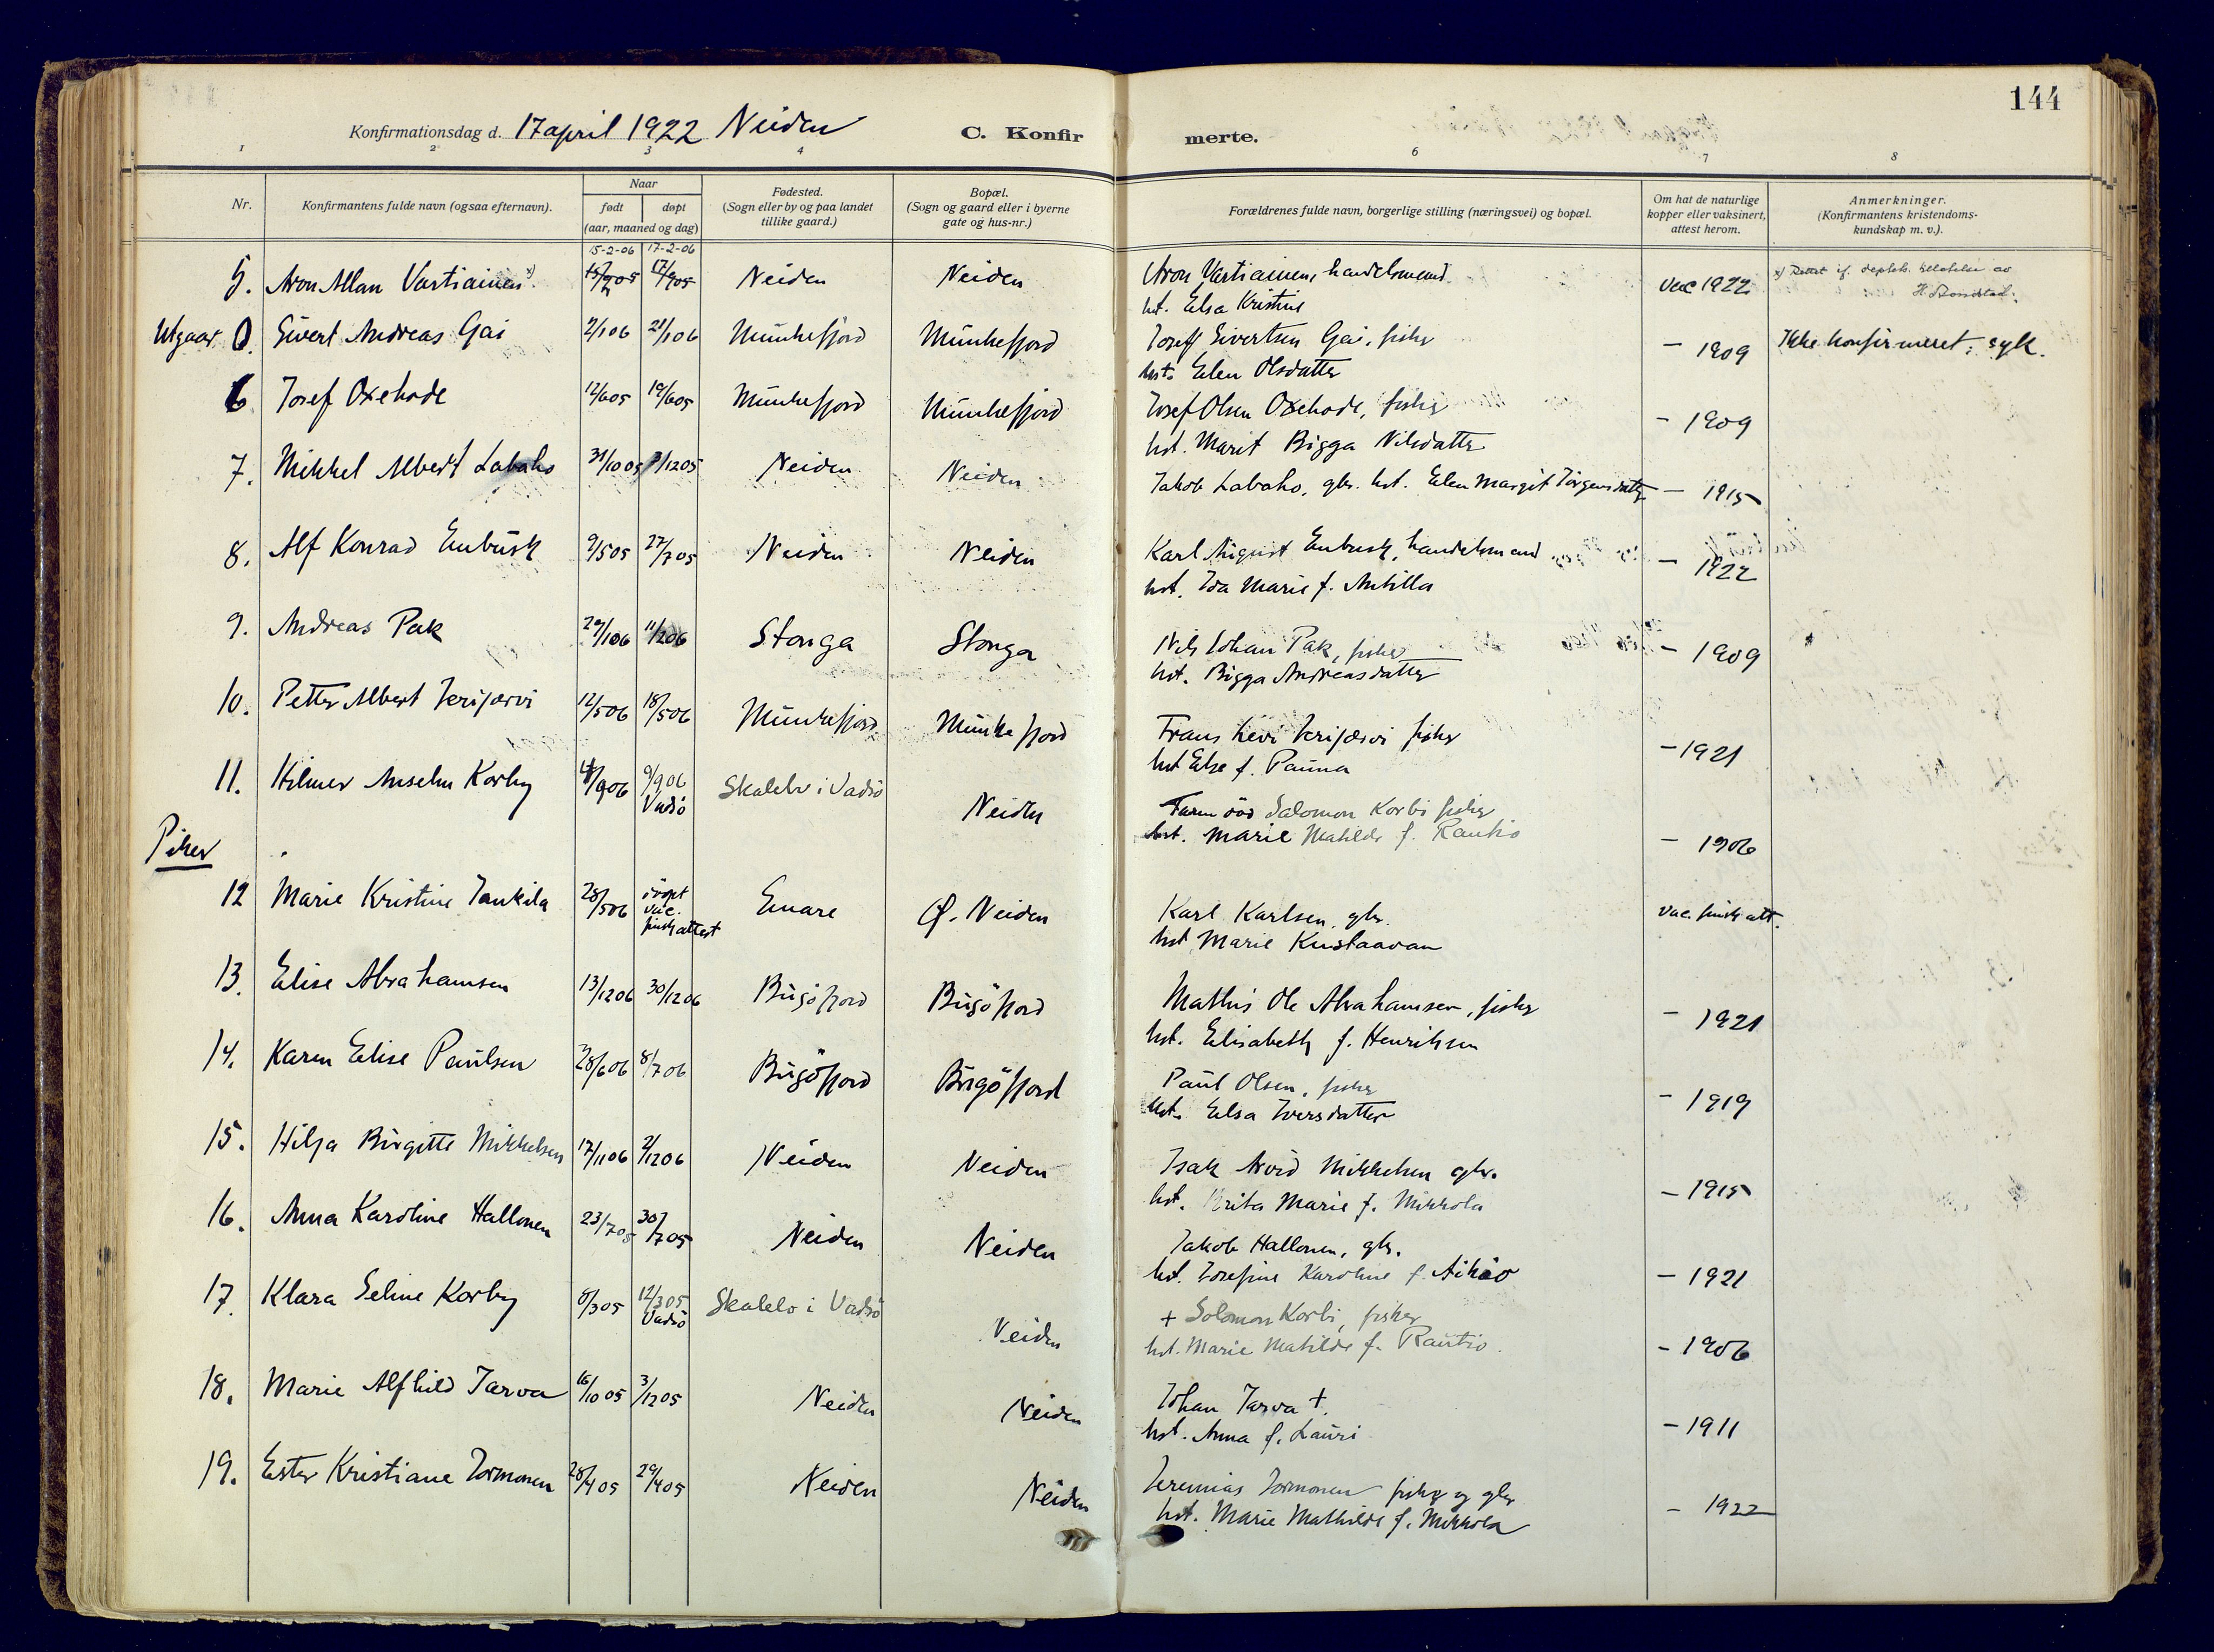 144
Konfirmationsdag d. 17 april 1922 Neiden C. Konfir merte.
1 2 3 4 6 7 8
Nr. Konfirmantens fulde navn (ogsaa efternavn). Naar født døpt (aar, maaned og dag) Fødested. (Sogn eller by og paa landet tillike gaard.) Bopæl. (Sogn og gaard eller i byerne gate og hus-nr.) Forældrenes fulde navn, borgerlige stilling (næringsvei) og bopæl. Om hat de naturlige kopper eller vaksinert, attest herom. Anmerkninger. (Konfirmantens kristendoms-kundskap m. v.).
15-2-06 17-2-06
5. Aron Allan Vartiainen x) 15/2 05 17/2 05 Neiden Neiden Aron Vartiainen, handelsmand vac 1922 x) Rettet if.
hst. Elsa Kristine
Utgaar 0. Sivert Andreas Gai 2/1 06 21/1 06 Munkefjord Munkefjord Josef Sivertsen Gai, fisker - 1909 Ikke konfirmeret; syk.
hst. Elen Olsdatter
6 Josef Oxehode 12/6 05 19/6 05 Munkefjord Munkefjord Josef Olsen Oxehode, fisker - 1909
hst. Marit Bigga Nilsdatter
7. Mikkel Albert Labaho 31/10 05 3/12 05 Neiden Neiden Jakob Labaho, gbr. hst. Elen Margit Jørgensdatter - 1915
8. Alf Konrad Enbusk 9/5 05 27/7 05 Neiden Neiden Karl August Enbusk, handelsmand - 1922
hst. Ida Marie f. Antilla
9. Andreas Pak 29/1 06 11/2 06 Stonga Stonga Nils Johan Pak, fisker - 1909
hst. Bigga Andreasdatter
10. Petter Albert Jerijærvi 12/5 06 18/5 06 Munkefjord Munkefjord Frans Levi Jerijærvi fisker - 1921
hst Else f. Pauna
11. Hilmer Anselm Korby 4/9 06 9/9 06 Vadsö Skalelv i Vadsö Neiden Farm död Salomon Korbi fisker
hst. Marie Matilde f. Rautio - 1906
Piker
12 Marie Kristine Tankila 28/5 06 döpt vac. finsk attest Enare Ø. Neiden Karl Karlsen, gbr. vac. finsk att.
hst Marie Kustaavan
13. Elise Abrahamsen 13/12 06 30/12 06 Bugöfjord Bugöfjord Mathis Ole Abrahamsen, fisker - 1921
hst. Elisabeth f. Henriksen
14. Karen Elise Paulsen 28/6 06 8/7 06 Bugöfjord Bugöfjord Paul Olsen, fisker - 1919
hst. Elsa Iversdatter
15. Hilja Birgitte Mikkelsen 17/11 06 2/12 06 Neiden Neiden Isak Arvid Mikkelsen gbr. - 1915
hst. Brita Marie f. Mikkola
16. Anna Karoline Hallonen 23/7 05 30/7 05 Neiden Neiden Jakob Hallonen, gbr.
hst. Josefine Karoline f. Aikio - 1921
17. Klara Seline Korby 8/3 05 12/3 05 Vadsö Skalelv i Vadsö Neiden + Solomon Korbi, fisker
hst. Marie Matilde f. Rautio. - 1906
18. Marie Alfhild Jarva 16/10 05 3/12 05 Neiden Neiden Johan Jarva +.
hst. Anna f. Lauri - 1911
19. Ester Kristiane Jormonen 28/4 05 29/4 05 Neiden Neiden Jeremias Jormonen fisker og gbr - 1922
hst. Marie Mathilde f. Mikkola